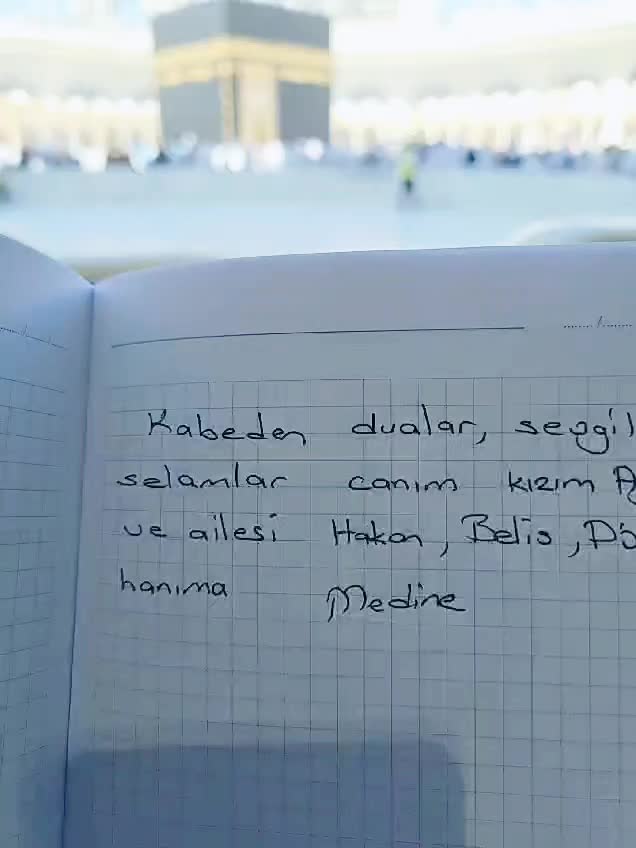 Kabeden dualar, sevgil
selamlar canım kızım
ve ailesi Hakan, Belis,
hanıma Medine